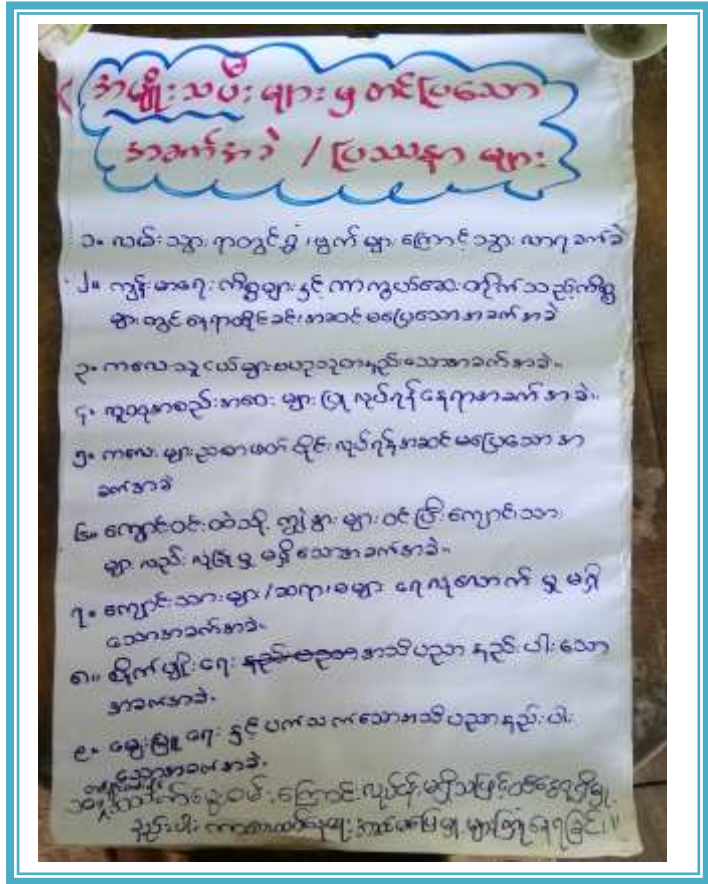 အမျိုးသမီးများမှ တင်ပြသော
အခက်အခဲ / ပြဿနာ များ
၁။ လမ်းသွားရာတွင် ရွှံ့ ၊ ဗွက် များ ကြောင့် သွားလာရ ခက်ခဲ
၂။ ကျန်းမာရေး ကိစ္စများ နှင့် ကာကွယ်ဆေး တိုက် သည့် ကိစ္စ
များ တွင် နေရာထိုင်ခင်း အဆင်မပြေသော အခက်အခဲ
၃။ ကလေးသူငယ်များ ဗဟုသုတ နည်းသော အခက်အခဲ။
၄။ လူထု အစည်းအဝေး များ ပြုလုပ်ရန် နေရာ အခက်အခဲ။
၅။ ကလေး များ ညစာဖတ် ဝိုင်း လုပ်ရန် အဆင်မပြေသော အ
ခက်အခဲ
၆။ ကျောင်းဝင်းထဲသို့ ကျွဲ နွား များ ဝင်ပြီး ကျောင်းသား
များ လည်း လုံခြုံ မှု မရှိသော အခက်အခဲ။
၇။ ကျောင်းသားများ / ဆရာ၊ မများ ရေ လုံလောက် မှု မရှိ
သော အခက်အခဲ။
၈။ စိုက်ပျိုးရေး အသိပညာ နည်းပါးသော
အခက်အခဲ။
၉။ မွေးမြူရေး နှင့် ပတ်သက်သော အသိပညာ နည်းပါး
သော အခက်အခဲ။
၁၀။ အသက်မွေးဝမ်းကြောင်း လုပ်ငန်း မရှိသဖြင့် ဝင်ငွေရရှိမှု
နည်းပါး အဆင်မပြေမှု များ ဖြစ်နေရခြင်း။